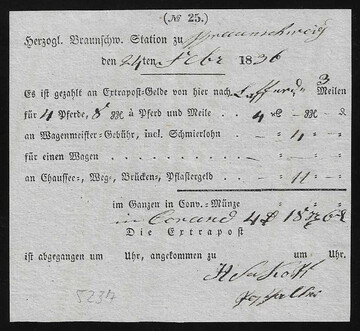 (№ 25.)
Herzogl. Braunschw. Station zu Braunschweig
den 24ten Febr 1836
Es ist gezahlt an Extrapost-Gelde von hier nach Lafferde 3 Meilen
für 4 Pferde, 8 à Pferd und Meile 4 - -
an Wagenmeister-Gebühr, incl. Schmierlohn - 4 -
für einen Wagen - - -
an Chaussee-, Weg-, Brücken-, Pflastergeld - 11 -
im Ganzen in Conv.-Münze
in 4 18
Die Extrapost
ist abgegangen um Uhr, angekommen zu um Uhr.
5234